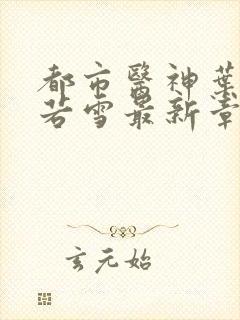 都市醫神葉
若雪最新章
玄元始